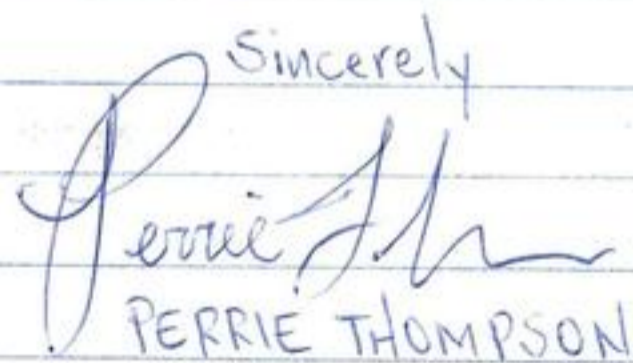 Sincerely
Perrie Th
PERRIE THOMPSON